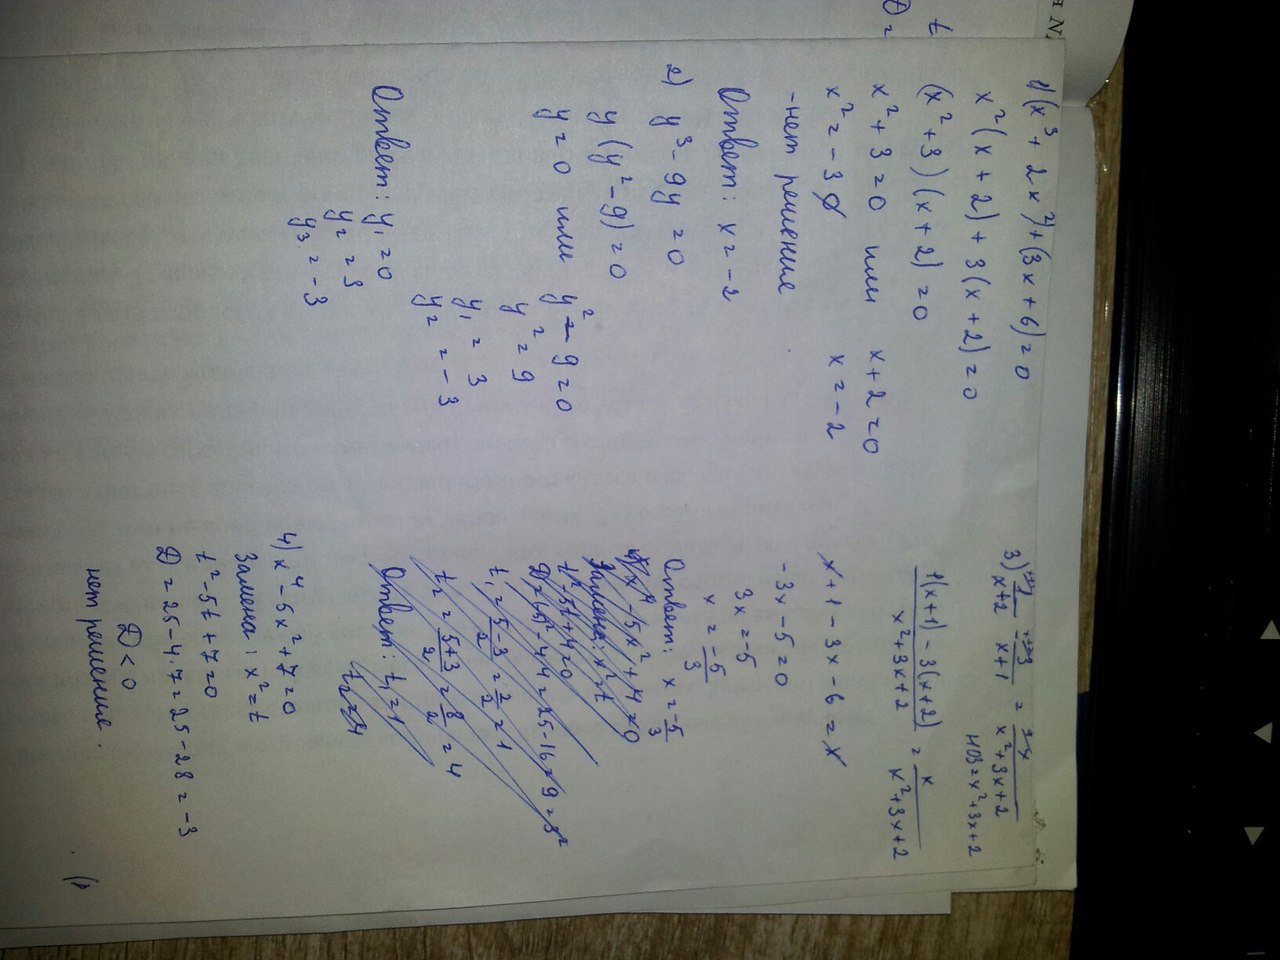 1) (x³ + 2x²) + (3x + 6) = 0
x²(x + 2) + 3(x + 2) = 0
(x² + 3)(x + 2) = 0
x² + 3 = 0 или x + 2 = 0
x² = -3 ∅ x = -2
- нет решение
Ответ: x = -2
2) y³ - 9y = 0
y(y² - 9) = 0
y = 0 или y² - 9 = 0
y² = 9
y₁ = 3
y₂ = -3
Ответ: y₁ = 0
y₂ = 3
y₃ = -3
3) 1/(x+2) - 3/(x+1) = x/(x²+3x+2)
НОЗ = x²+3x+2
(1(x+1) - 3(x+2))/(x²+3x+2) = x/(x²+3x+2)
x + 1 - 3x - 6 = x
-3x - 5 = 0
3x = -5
x = -5/3
Ответ: x = -5/3
4) x⁴ - 5x² + 4 = 0
Замена: x² = t
t² - 5t + 4 = 0
D = 5² - 4·4 = 25 - 16 = 9 = 3²
t₁ = (5-3)/2 = 2/2 = 1
t₂ = (5+3)/2 = 8/2 = 4
Ответ: t₁ = 1
t₂ = 4
4) x⁴ - 5x² + 7 = 0
Замена: x² = t
t² - 5t + 7 = 0
D = 25 - 4·7 = 25 - 28 = -3
D < 0
нет решение.
t
D =